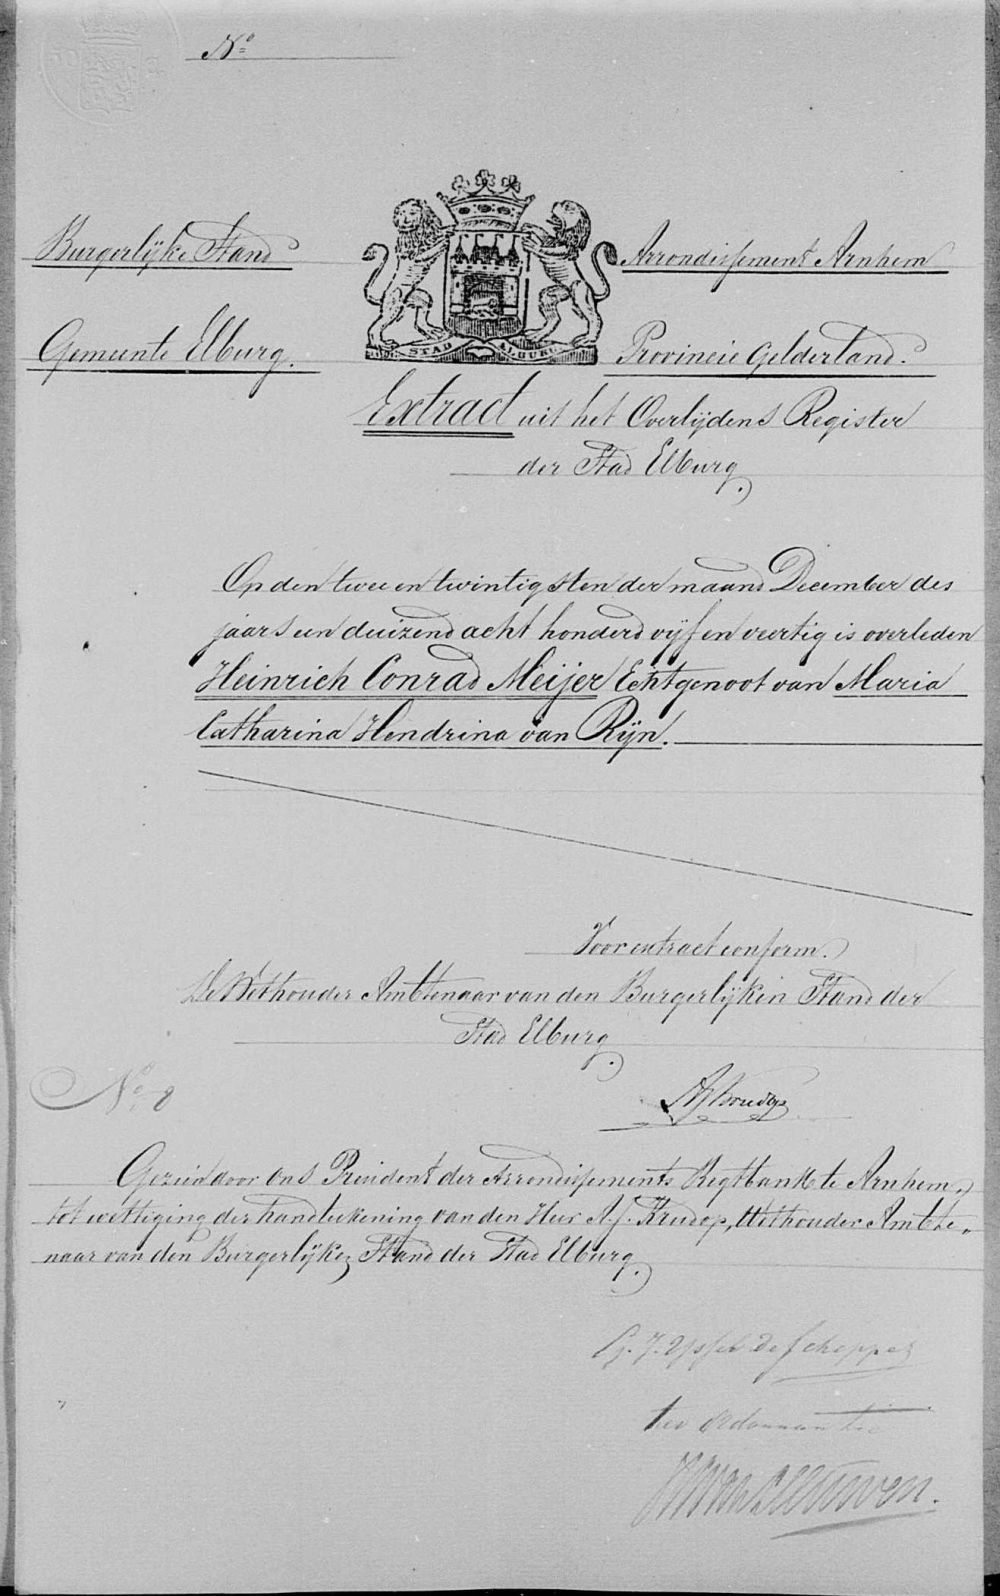 No
Burgerlijke Stand
Arrondissement Arnhem
Gemeente Elburg.
Provincie Gelderland.
STAD ELBURG
Extract uit het Overlijdens Register
der Stad Elburg
Op den twee en twintigsten der maand December des
jaars een duizend acht honderd vijf en veertig is overleden
Heinrich Conrad Meijer Echtgenoot van Maria
Catharina Hendrina van Rijn.
Voor extract conform.
De Wethouder Ambtenaar van den Burgerlijken Stand der
Stad Elburg
No 8
Gezien door ons President der Arrondissements Regtbank te Arnhem
tot wettiging der handteekening van den Heer A. J. Krudop, Wethouder Ambte„
naar van den Burgerlijke Stand der Stad Elburg
de Schepper
ter ordonnantie
van Leeuwen.